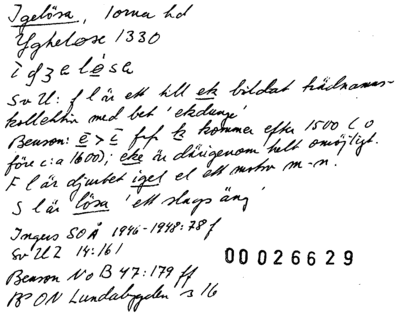 Igelösa, Torna hd
Yghelöse 1330
i g z a l ø s a
Sv U: f l är ett till ek bildat trädnamns-
kollektiv med bet 'ekdunge'
Benson: e > i frf k kommer efter 1500 (o
före c:a 1600); eke är därigenom helt omöjligt.
F l är djuret igel el ett motsv m-n.
S l är lösa 'ett slags äng'
Ingers SOÅ 1946-1948:78 f
Sv U 2 14:161
00026629
Benson NoB 47:179 ff
BP ON Lundabygden s 16